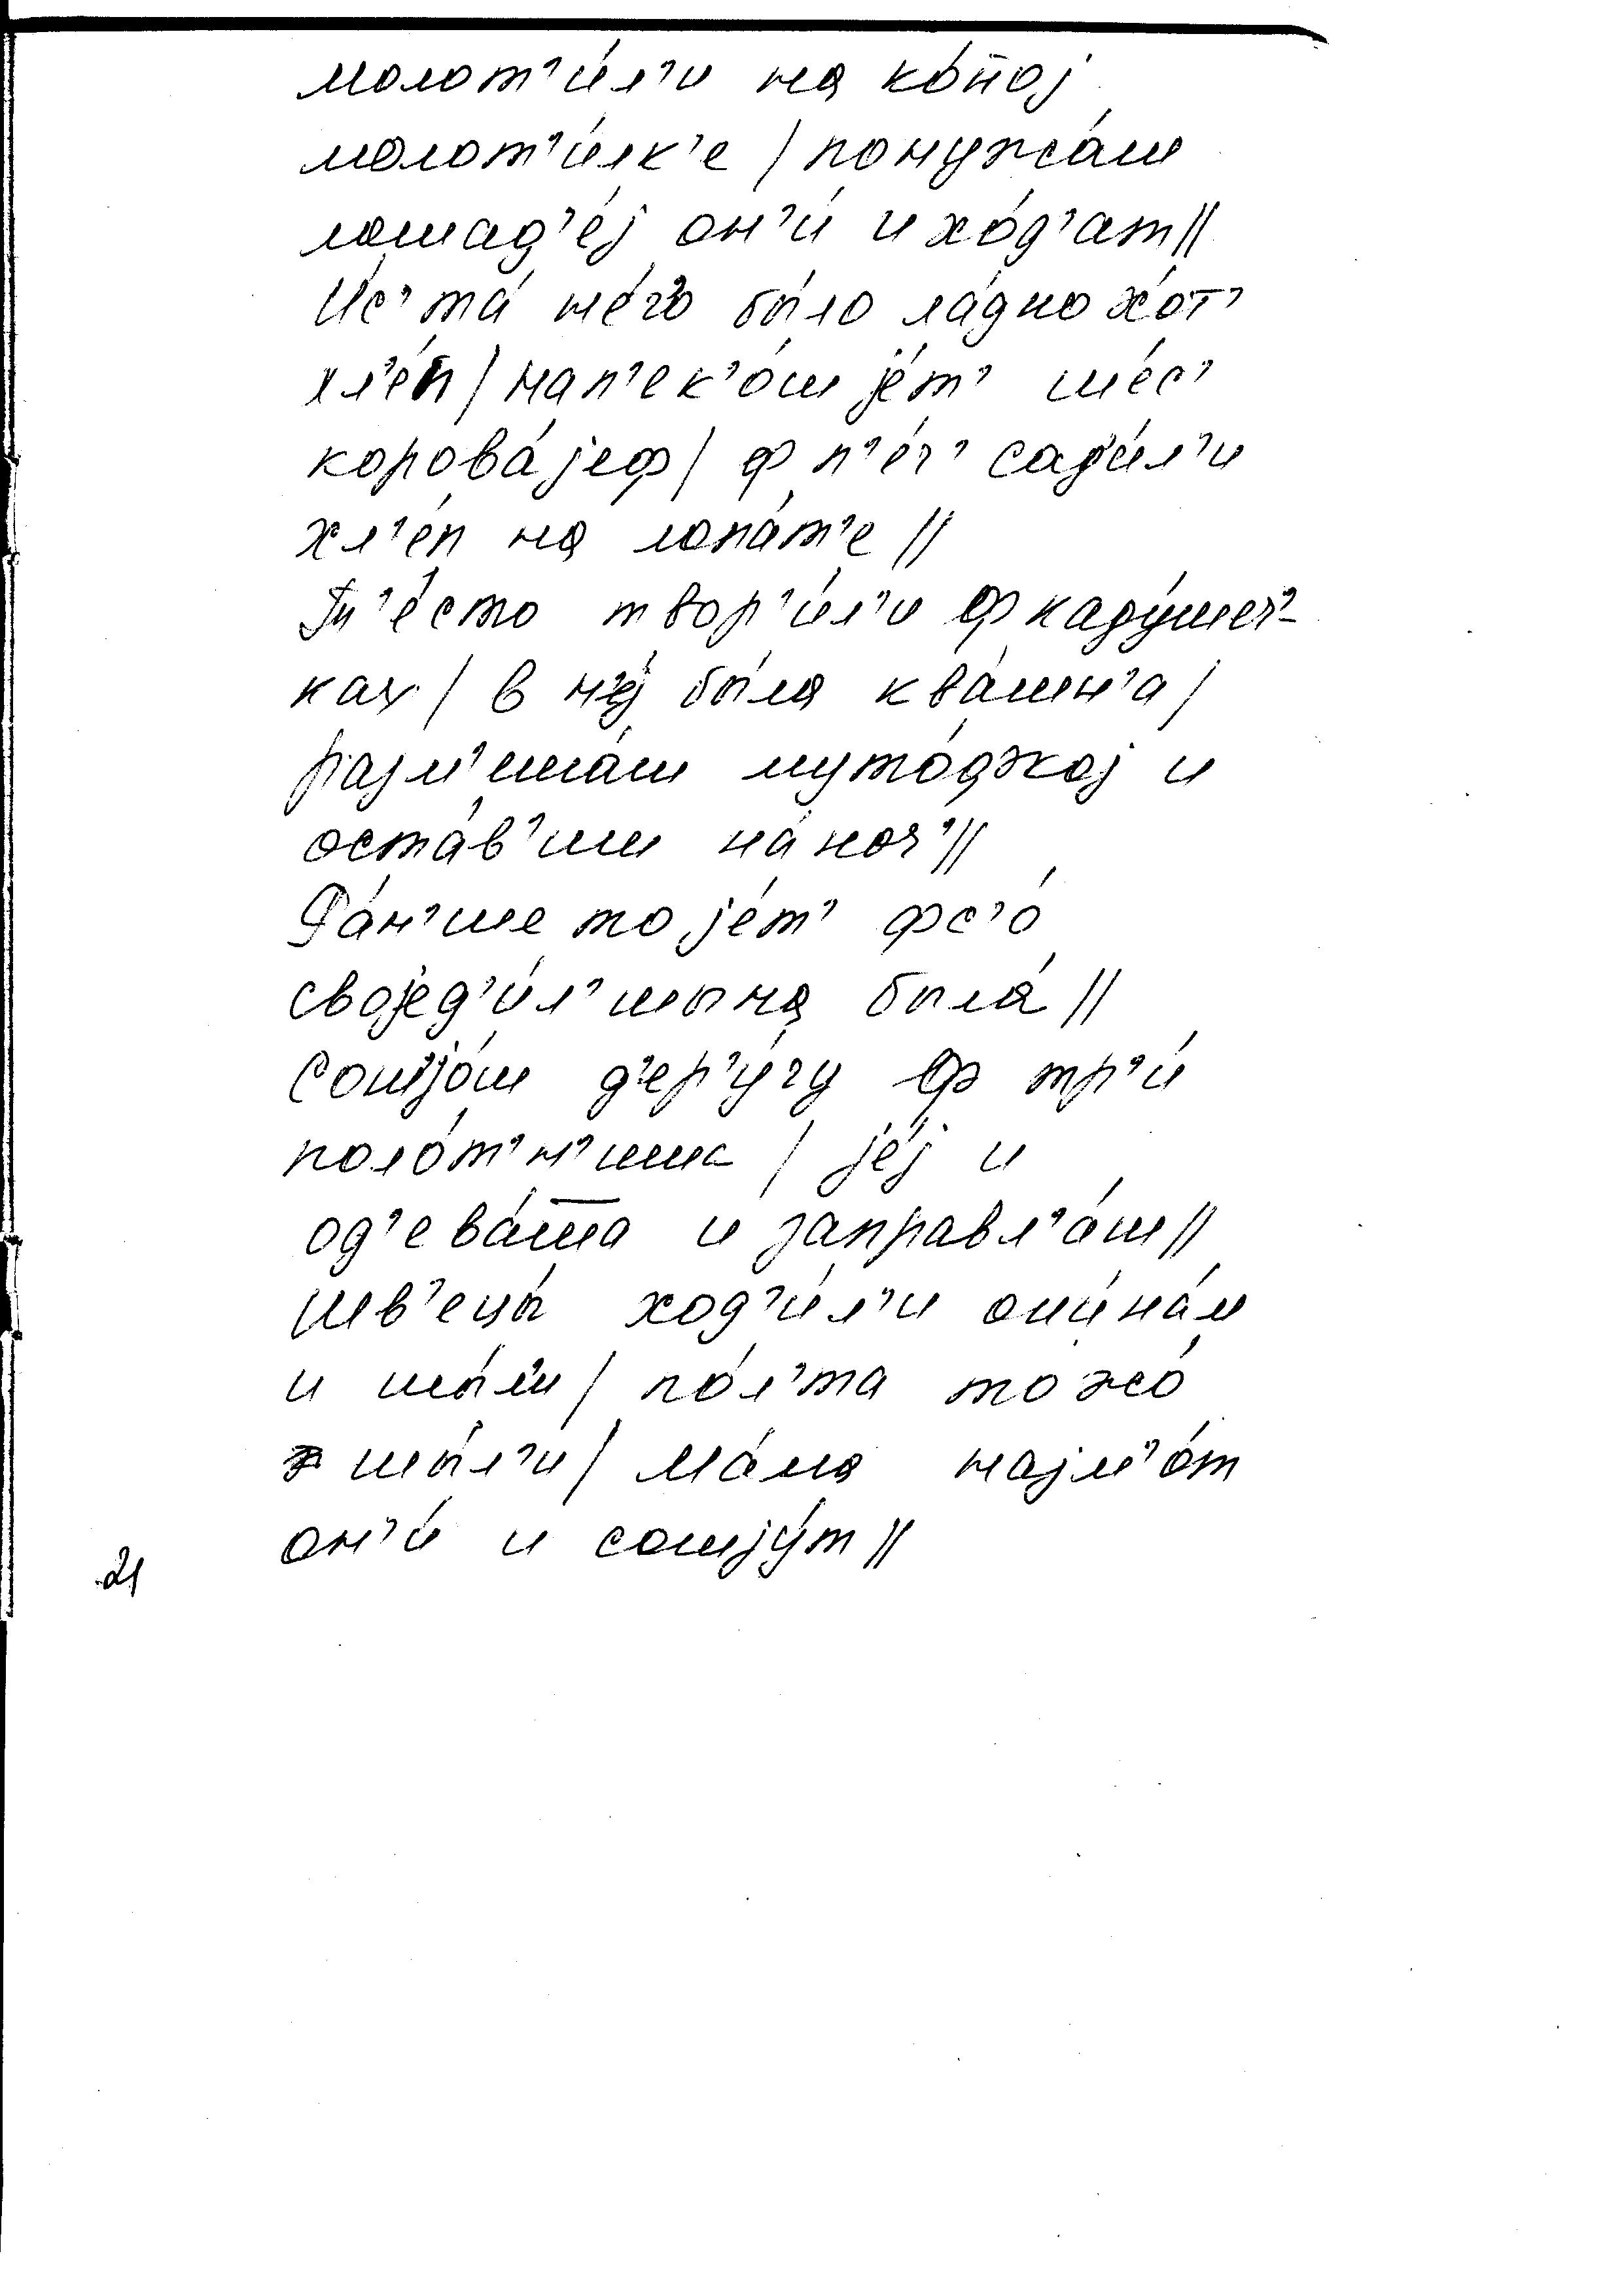 молот'и́л'и на ко́н̄ој
молот'и́лк'е / понужа́ш
лошад'е́ј он'и́ и хо́д'ат //
И́с'та́ не́го бы́ло ла́дно хот'
хл'е́п / нап'ек'о́ш је́т' ше́с'
корова́јеф / ф п'е́ч' сад'и́л'и
хл'е́п на лопа́т'е //
Т'е́сто твор'и́л'и ф каду́шеч'-
ках / в н'е́ј бы́ла квашн'а /
разм'ша́ш муто́джој и
оста́в'иш на́ноч' //
Ра́н'ше то је́т' фс'о́
својед'и́л'шына была́ //
Сошјо́ш д'ер'у́гу ф тр'и́
поло́т'н'ишша / је́ј и
од'ева́т̄ца и заправл'а́ш //
Шв'ецы́ ход'и́л'и
и шы́л'и / по́л'та то жо́
шы́л'и / Ма́ма најм'о́т
он'и́ и сошју́т //
21